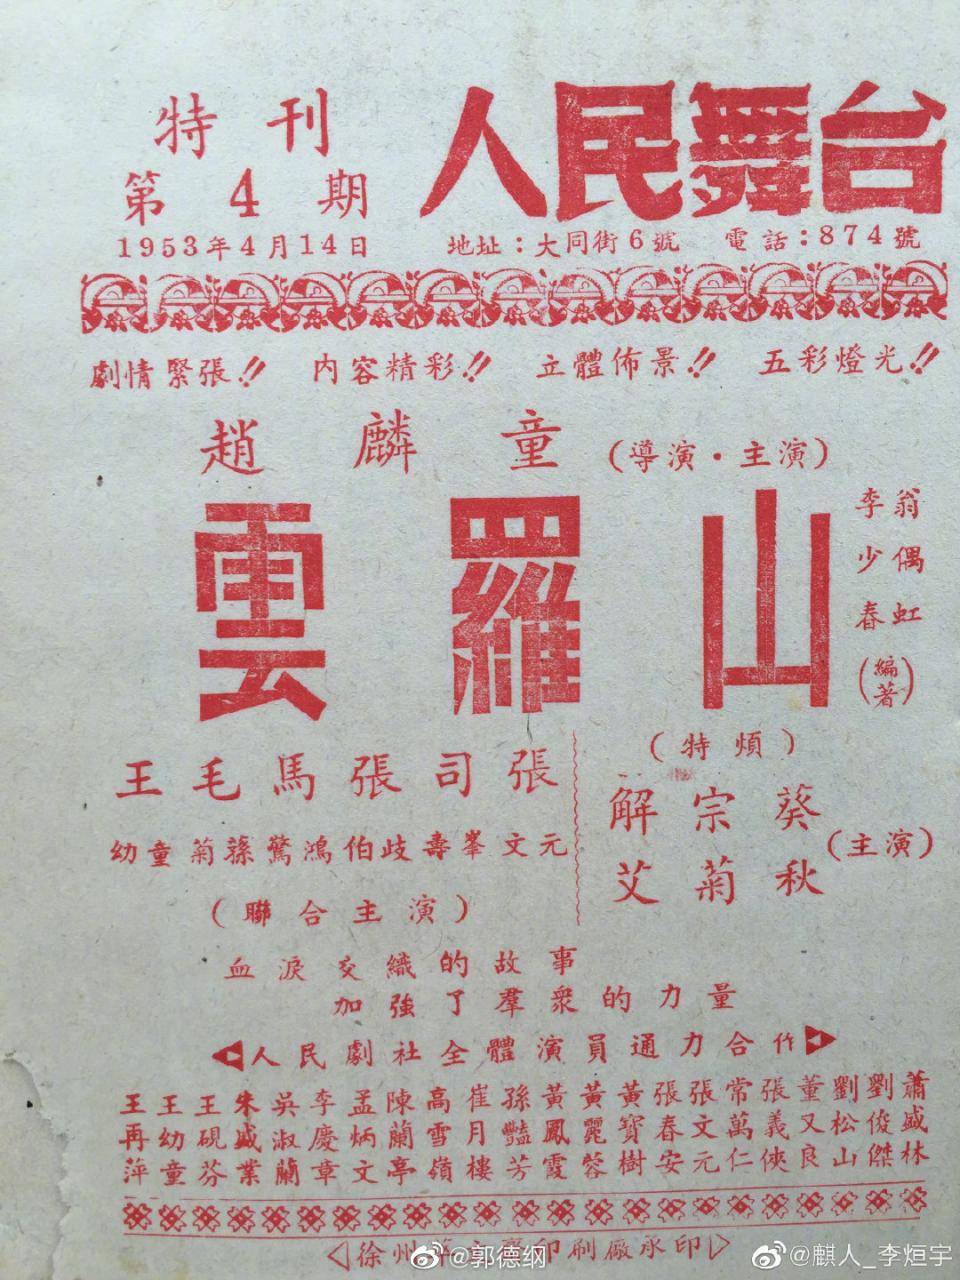 特刊
第4期
1953年4月14日
人民舞台
地址：大同街6號 電話：874號
劇情緊張!! 內容精彩!! 立體佈景!! 五彩燈光!!
趙麟童（導演·主演）
雲羅山
翁偶虹
李少春
（編著）
王毛馬張司張
幼童菊蓀驚鴻伯歧壽峯文元
（聯合主演）
（特煩）
解宗葵
艾菊秋
（主演）
血淚交織的故事
加強了羣衆的力量
人民劇社全體演員通力合作
王再萍
王幼童
王硯芬
朱盛業
吳淑蘭
李慶章
孟炳文
陳蘭亭
高雪嶺
崔月樓
孫豔芳
黃鳳霞
黃麗蓉
黃寶樹
張春安
張文元
常萬仁
張義俠
董又良
劉松山
劉俊傑
蕭盛林
徐州 印刷廠承印
@郭德纲
@麒人_李烜宇